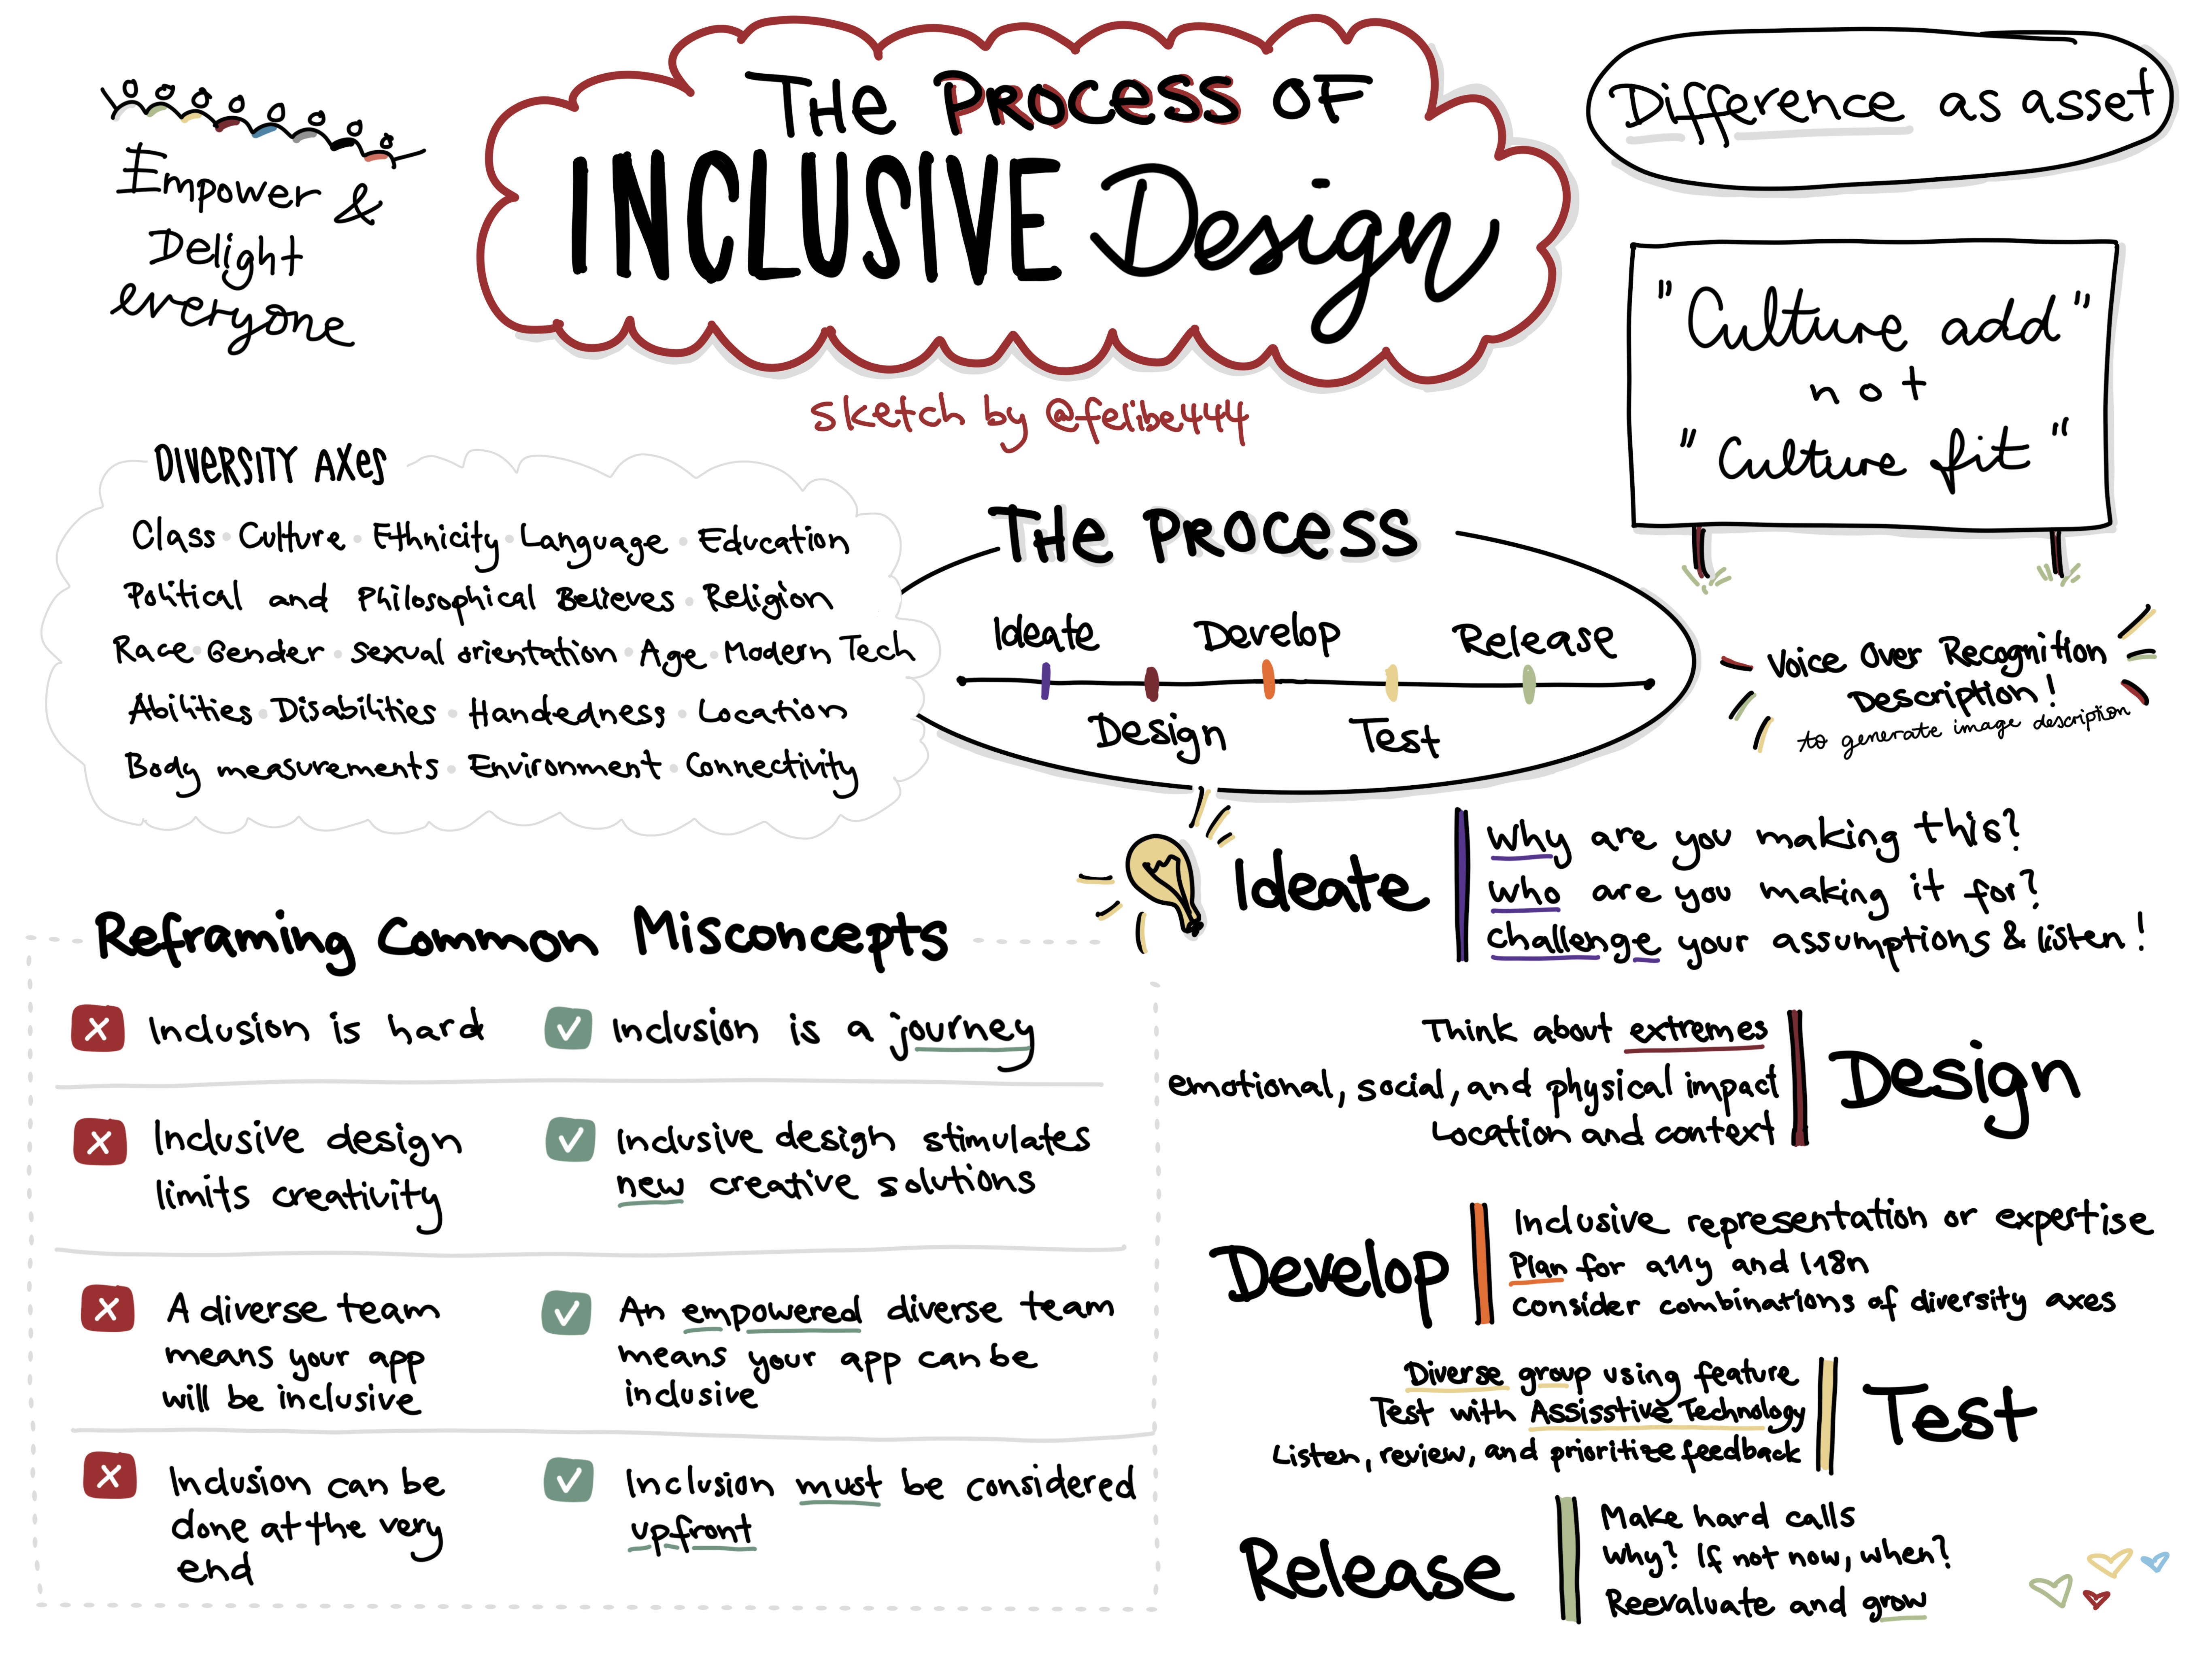 Empower &
Delight
everyone
THE PROCESS OF
INCLUSIVE Design
sketch by @felibe444
Difference as asset
"Culture add"
not
"Culture fit"
DIVERSITY AXES
Class • Culture • Ethnicity • Language • Education
Political and Philosophical Believes • Religion
Race • Gender • Sexual orientation • Age • Modern Tech
Abilities • Disabilities • Handedness • Location
Body measurements • Environment • Connectivity
THE PROCESS
Ideate
Develop
Release
Design
Test
Voice Over Recognition
Description!
to generate image description
Reframing Common Misconcepts
Inclusion is hard
Inclusion is a journey
Inclusive design
limits creativity
Inclusive design stimulates
new creative solutions
A diverse team
means your app
will be inclusive
An empowered diverse team
means your app can be
inclusive
Inclusion can be
done at the very
end
Inclusion must be considered
upfront
Ideate
Why are you making this?
who are you making it for?
challenge your assumptions & listen!
Think about extremes
emotional, social, and physical impact
Location and context
Design
Develop
Inclusive representation or expertise
Plan for a11y and i18n
consider combinations of diversity axes
Diverse group using feature
Test with Assisstive Technology
Listen, review, and prioritize feedback
Test
Release
Make hard calls
Why? If not now, when?
Reevaluate and grow